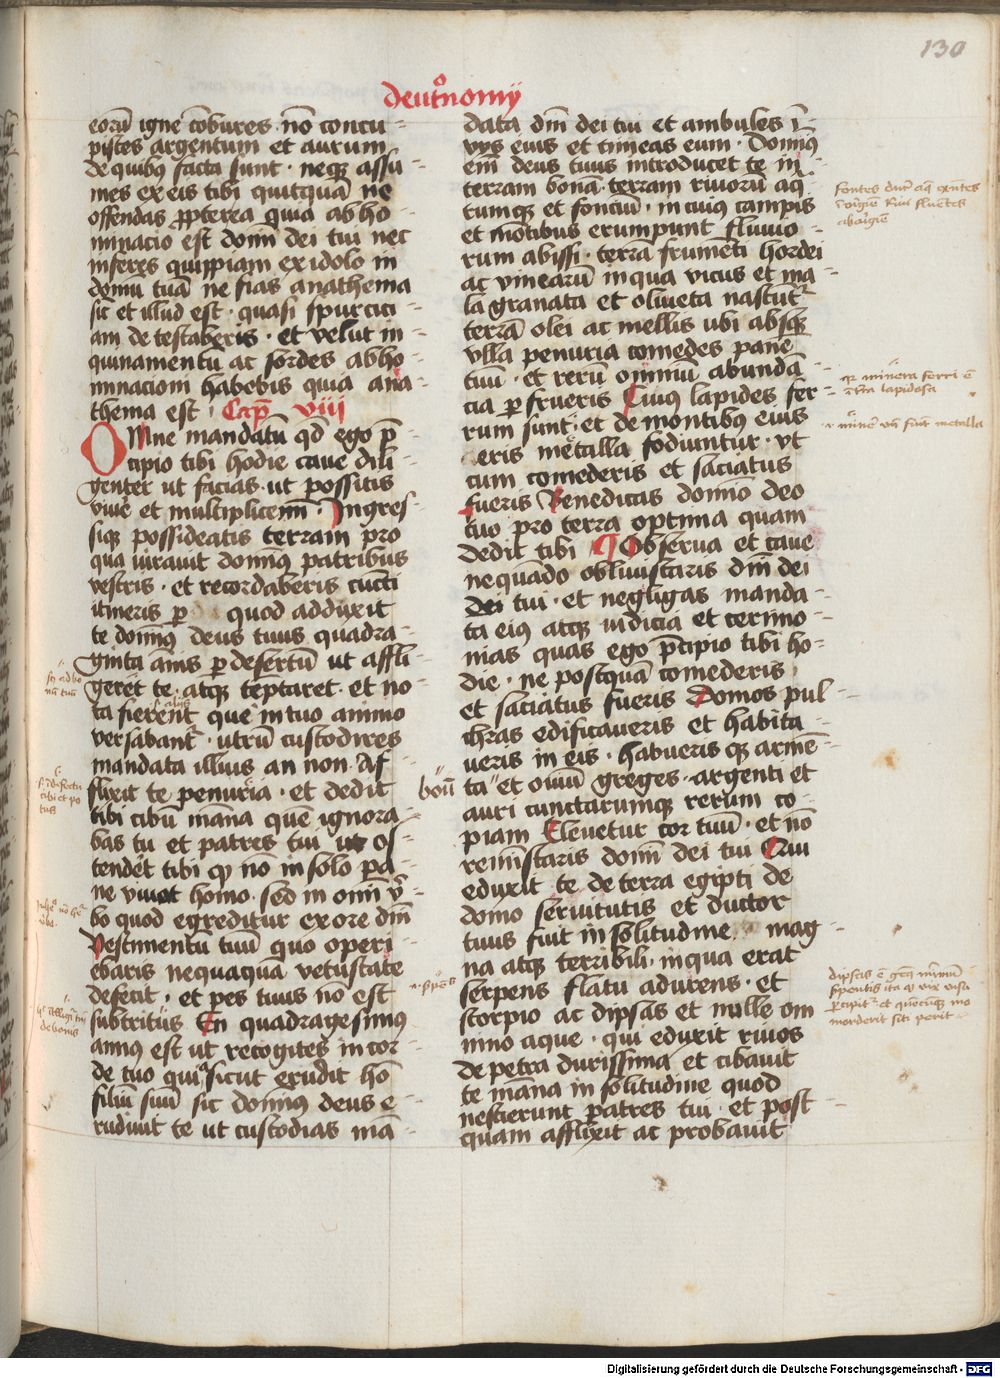 130
deutonomy
eorū igne cōbures nō concu
pisces argentum et aurum
de quibus facta sunt · neque assu
mes ex eis tibi quitquā ne
offendas propterea quia abho
minacio est domini dei tui nec
inferes quippiam ex idolo in
domū tuā ne fias anathema
sic et illud est · quasi spurcici
am detestaberis · et velut in
quinamentū ac sordes abho
minacioni habebis quia ana
thema est · Cap viii
Omne mandatū qd ego p̄
cipio tibi hodie caue dili
genter ut facias ut possitis
viuere et multiplicemini · Ingres
sique possideatis terram pro
qua iurauit dominus patribus
vestris · et recordaberis cuncti
itineris per quod adduxit
te dominus deus tuus quadra
ginta annis per desertū ut affli
geret te atque temptaret · et no
ta fierent que in tuo animo
versabantur · utrū custodires
mandata illius an non · Af
flixit te penuria · et dedit
tibi cibū manna quē ignora
bas tu et patres tui ut os
tendet tibi qp nō in solo pa
ne viuat homo · sed in omni ver
bo quod egreditur ex ore dni
Vestimentū tuū quo operi
ebaris nequaquā vetustate
defecit · et pes tuus nō est
subtritus En quadragesimus
annus est ut recogites in cor
de tuo quia sicut erudit ho
filiū suū sic dominus deus e
rudiuit te ut custodias mā
data dni dei tui et ambules in
vijs eius et timeas eum · Dominus
enim deus tuus introducet te in
terram bonā · terram riuorū aq
rumque et fonciū · in cuius campis
et motibus erumpunt fluuio
rum abissi · terrā frumēti hordei
ac vinearū in qua vicus et ma
la granata et oliueta nascūt
terrā olei ac mellis ubi absque
vlla penuria comedes panē
tuū · et rerū omniū abundā
cia per frueris Cuius lapides fer
rum sunt · et de montibus eius
eris metalla fodiuntur · vt
cum comederis et saciatus
fueris Benedicas domino deo
tuo pro terra optima quam
dedit tibi ¶ Obserua et caue
nequādo obliuiscaris dni dei
dei tui · et negligas manda
ta eius atque iudicia et cerimo
nias quas ego p̄cipio tibi ho
die · ne postquā comederis
et saciatus fueris Domos pul
chras edificaueris et habita
ueris in eis · habueris que armē
boū ta et ouiū greges · argenti et
auri cunctarumque rerum co
piam Eleuetur cor tuū · et nō
reminiscaris domini dei tui Qui
eduxit te de terra egipti de
domo seruitutis et ductor
tuus fuit in solitudine mag
na atque terribili · in qua erat
serpens flatu adurens · et
scorpio ac dipsas et nulle om
nino aque · qui eduxit riuos
de petra durissima et cibauit
te māna in solitudine quod
nescierunt patres tui · et post
quam afflixit ac probauit
Digitalisierung gefördert durch die Deutsche Forschungsgemeinschaft - DFG